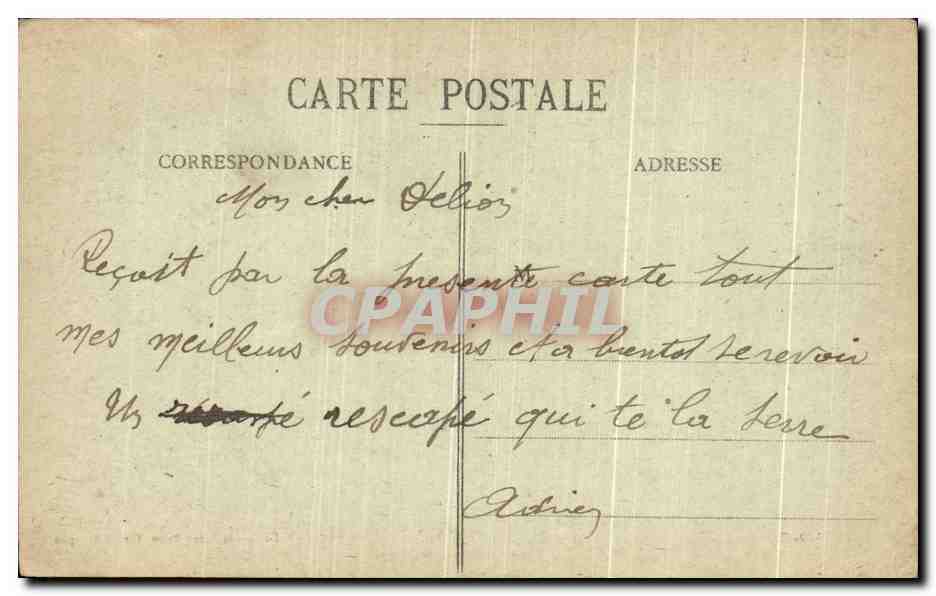 CARTE POSTALE
CORRESPONDANCE
ADRESSE
Mon cher Delion
Reçoit par la presente carte tout
mes meilleurs souvenirs et a bientot se revoir
Un rescapé qui te la serre
Adrien
CPAPHIL